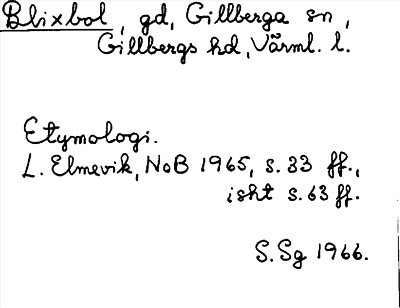 Blixbol, gd, Gillberga sn,
Gillbergs hd, Värml. l.
Etymologi.
L. Elmevik, NoB 1965, s. 33 ff.,
isht s. 63 ff.
S. Sg 1966.